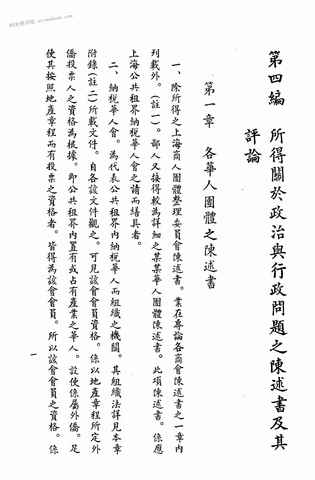 第四編　所得關於政治與行政問題之陳述書及其
評論
第一章　各華人團體之陳述書
一、除所得之上海商人團體整理委員會陳述書。業在專論各商會陳述書之一章內
列載外。（註一）。鄙人又接得較為詳細之某某華人團體陳述書。此項陳述書。係應
上海公共租界納稅華人會之請而繕具者。
二、納稅華人會。為代表公共租界內納稅華人而組織之機關。其組織法詳見本章
附錄（註二）所載文件。自各該文件觀之。可見該會會員資格。係以地產章程所定外
僑投票人之資格為根據。即公共租界內置有或占有產業之華人。設使係屬外僑。足
使其按照地產章程而有投票之資格者。皆得為該會會員。所以該會會員之資格。係
一